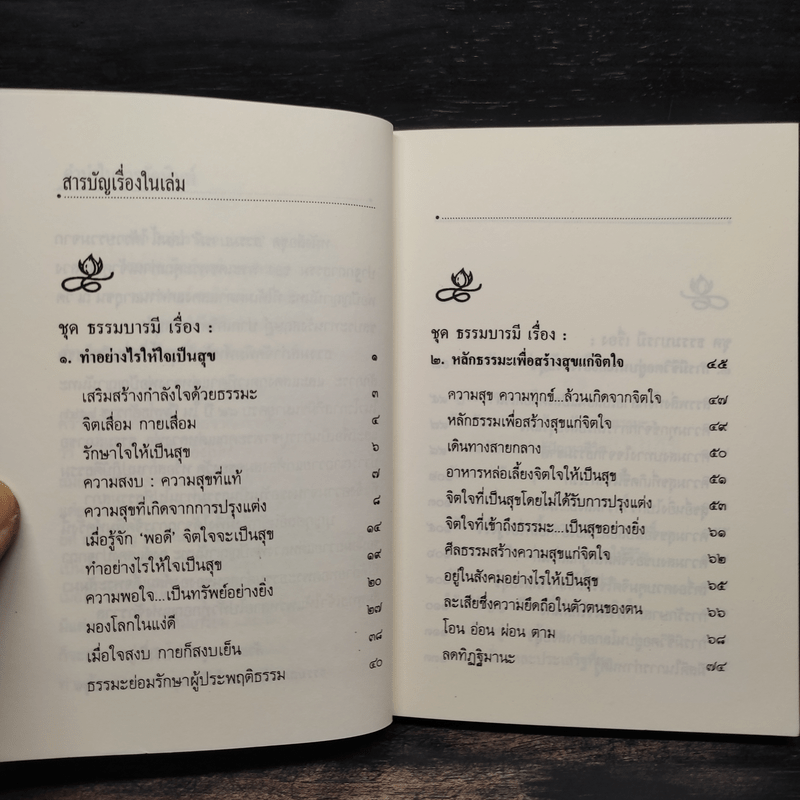 สารบัญเรื่องในเล่ม
ชุด ธรรมบารมี เรื่อง :
๑. ทำอย่างไรให้ใจเป็นสุข ๑
เสริมสร้างกำลังใจด้วยธรรมะ ๓
จิตเสื่อม กายเสื่อม ๔
รักษาใจให้เป็นสุข ๖
ความสงบ : ความสุขที่แท้ ๗
ความสุขที่เกิดจากการปรุงแต่ง ๘
เมื่อรู้จัก ‘พอดี’ จิตใจจะเป็นสุข ๑๔
ทำอย่างไรให้ใจเป็นสุข ๑๙
ความพอใจ...เป็นทรัพย์อย่างยิ่ง ๒๐
มองโลกในแง่ดี ๒๗
เมื่อใจสงบ กายก็สงบเย็น ๓๘
ธรรมะย่อมรักษาผู้ประพฤติธรรม ๔๐
ชุด ธรรมบารมี เรื่อง :
๒. หลักธรรมะเพื่อสร้างสุขแก่จิตใจ ๔๕
ความสุข ความทุกข์...ล้วนเกิดจากจิตใจ ๔๗
หลักธรรมเพื่อสร้างสุขแก่จิตใจ ๔๙
เดินทางสายกลาง ๕๐
อาหารหล่อเลี้ยงจิตใจให้เป็นสุข ๕๑
จิตใจที่เป็นสุขโดยไม่ได้รับการปรุงแต่ง ๕๓
จิตใจที่เข้าถึงธรรมะ...เป็นสุขอย่างยิ่ง ๖๑
ศีลธรรมสร้างความสุขแก่จิตใจ ๖๒
อยู่ในสังคมอย่างไรให้เป็นสุข ๖๕
ละเสียซึ่งความยึดถือในตัวตนของตน ๖๖
โอน อ่อน ผ่อน ตาม ๖๘
ลดทิฏฐิมานะ ๗๔